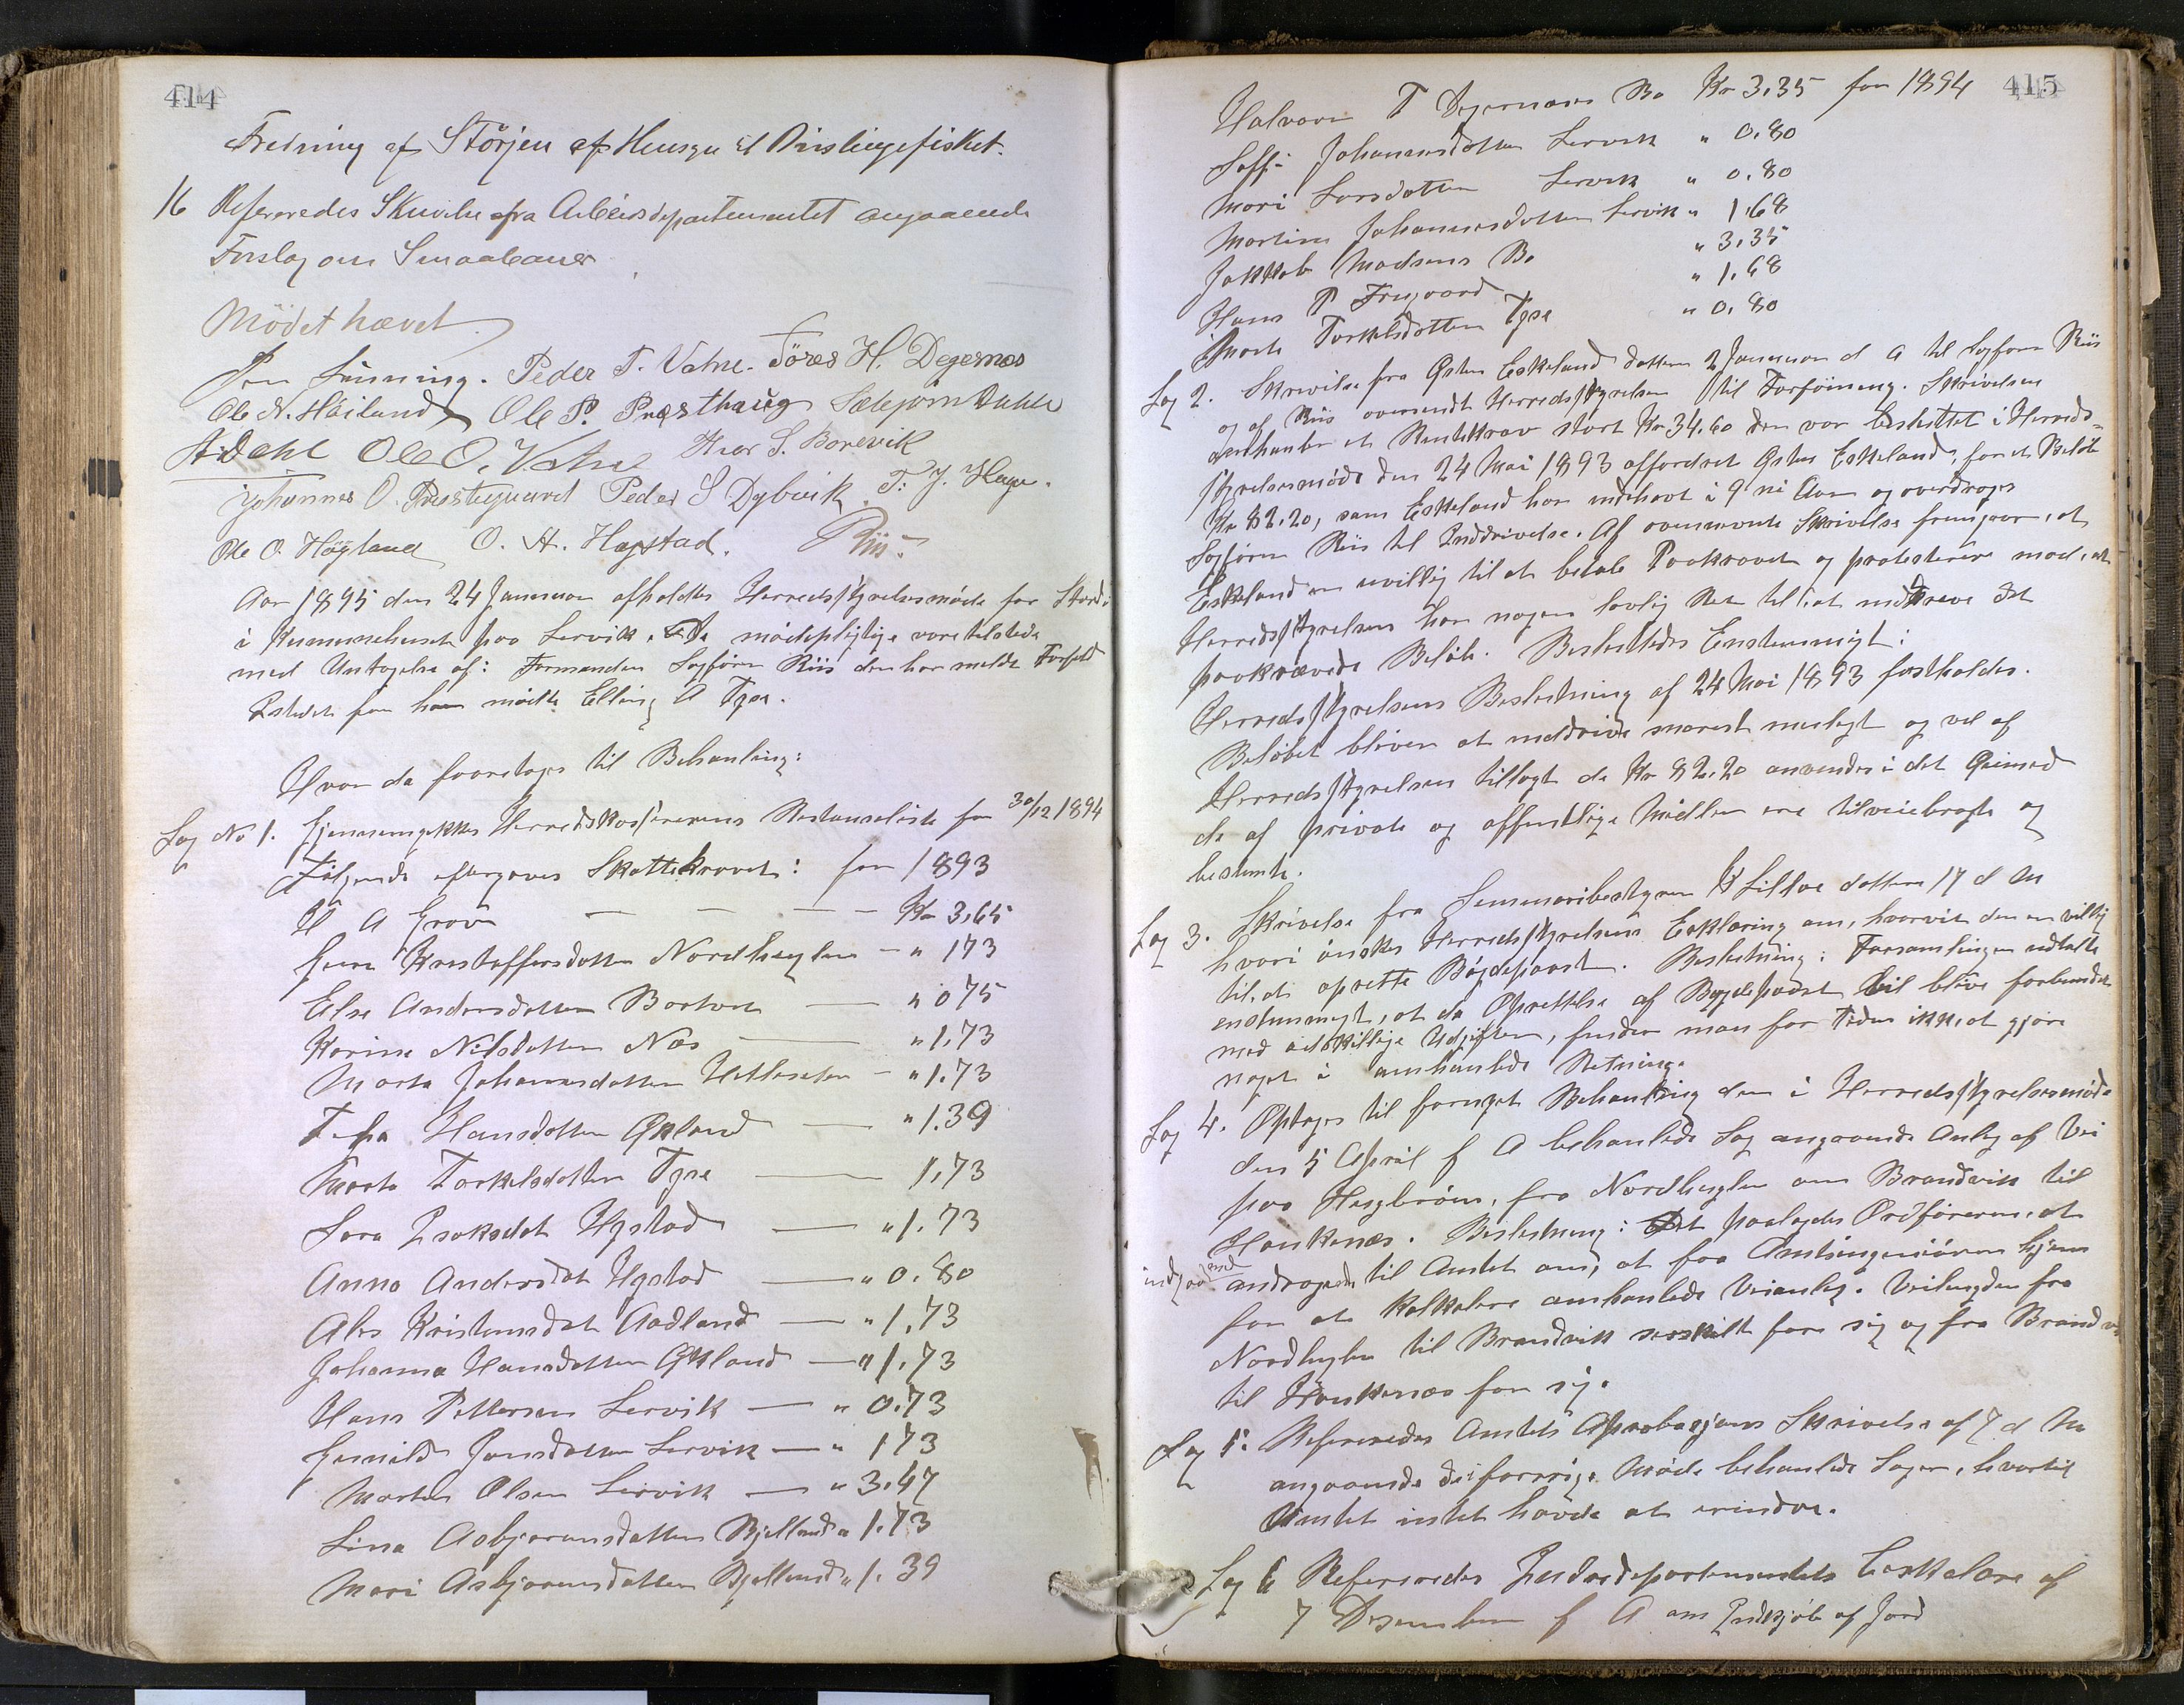 414
Fredning af Störjen af Hensyn til Brislingefisket.
16 Refereredes Skrivelse fra Arbeidsdepartementet angaaende
Forslag om Smaabaner
Mödet hævet
Peder T. Vatne. Töres H. Degernes
Ole N. Hailand Ole P. Præsthaug Sæbjörn Dahle
A. Dahl Ole O. Vatne Ivar S. Borevik
Johannes O. Prestegaard Peder S Dybvik T. J. Hauge.
Ole O. Högland O. A. Hagstad. Riis
Aar 1895 den 24 Januar afholdtes Herredsstyrelsesmöde for Stord
i Kummunehuset paa Lervik. De mödepligtige vare tilstede
med Untagelse af: Formanden Sagförer Riis der har meldt Forfald
Istedet for ham mödte Elling A Tyse.
Hvor da foretoges til Behanling:
Sag No 1. Gjennemgikkes Herredskassererens Restanseliste for 30/12 1894
Fölgende eftergaves Skattekravet: for 1893
H A Grov — — — Kr 3,65
Kristoffersdatter Nordhuglen — " 173
Else Andersdatter Bortvet — " 075
Karine Nilsdatter Næs — " 1.73
Marta Johannesdatter Hetleseter — " 1.73
Hansdatter Økland — " 1.39
Marta Torkelsdatter Tyse — 1,73
Sara Isaksdat Hystad — " 1.73
Anna Andersdat Hystad — " 0.80
Ales Kristensdat Aadland — " 1,73
Johanna Hansdatter Økland — " 1.73
Hans Pettersen Lervik — " 0.73
Gunild Jonsdatter Lervik — " 173
Marta Olsen Lervik — " 3.47
Lina Asbjörnsdatter Bjelland " 1.73
Mari Asbjörnsdatter Bjelland " 1.39
415
Halvor T Degernæs Bo Kr 3.35 for 1894
Soffi Johannesdatter Lervik " 0.80
Mari Larsdatter Lervik " 0.80
Martine Johannesdatter Lervik " 1.68
Jakkob Madsens Bo " 3.35
Hans P Frugaard " 1.68
Marte Torkelsdatter Tyse " 0.80
Sag 2. Skrivelse fra Østen Eskeland datteret 2 Januar d A til Sagförer Riis
og af Riis oversendt Herredsstyrelsen til Forföining. Skrivelsen
omhanler et Rentekrav stort Kr 34.60 der var besluttet i Herreds=
styrelsesmöde den 24 Mai 1893 affordret Østen Eskeland, for et Belöb
Kr 82.20, som Eskeland har indehavt i 9 ni Aar og overdroges
Sagförer Riis til Inddrivelse. Af ovennevnte Skrivelse fremgaar, at
Eskeland er uvillig til at betale Paakravet og protesterer mod, at
Herredsstyrelsen har nogen lovlig Ret til at inddreve det
paakrævede Belöb. Besluttedes Enstemmigt:
Herredsstyrelsens Beslutning af 24 Mai 1893 fastholdes.
Belöbet bliver at inddrive snarest muligt og vil af
Herredsstyrelsen tillagt de Kr 82.20 anvendes i det Øimed
de af private og offentlige Midler ere tilveiebragte og
bestemte.
Sag 3. Skrivelse fra Semmeribestyrer Lilloe datteret 17 d M
hvori önskes Herredsstyrelsens Erklæring om, hvorvidt den er villig
til, at oprette Bögdepaast. Beslutning: Forsamlingen udtalte
enstemmigt, at da Oprettelse af Bygdepaast vil blive forbundet
med adskillige Udgifter, finder man for Tiden ikke, at gjöre
noget i omhanlede Retning.
Sag 4. Optoges til fornyet Behanling den i Herredsstyrelsesmöde
den 5 April f A behanlede Sag angaaende Anleg af Vei
paa Huglaröen, fra Nordhuglen om Brandvik til
Haukenæs. Beslutning: Det paalægdes Ordföreren, at
indgaa med andragende til Amtet om, at faa Amtsingeniören hjem
for at kalkulere omhanlede Veianleg. Veilengden fra
Nordhuglen til Brandvik serskilt fore sig og fra Brandvik
til Haukenæs for sig.
Sag 5. Refereredes Amtets Aprobasjons Skrivelse af 7 d M
angaaende de i forrige Möde behanlede Sager, hvortil
Amtet intet havde at erindre.
Sag 6 Refereredes Indredepartementets Cerkulære af
7 Desember f A om Indkjöb af Jord